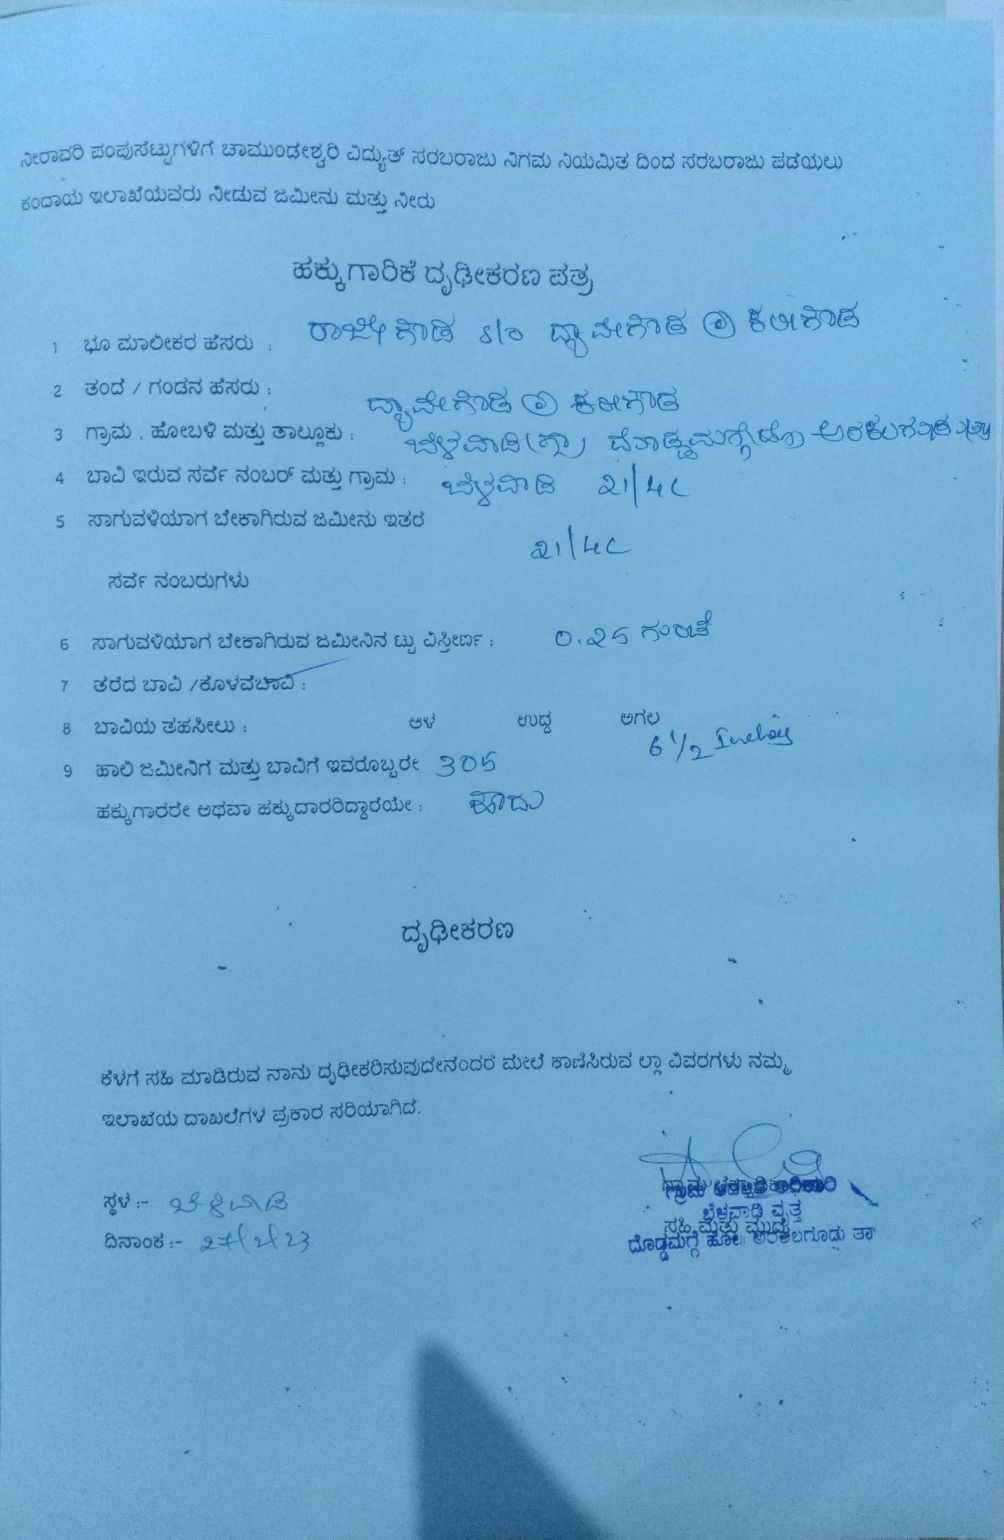 ನೀರಾವರಿ ಪಂಪುಸೆಟ್ಟುಗಳಿಗೆ ಚಾಮುಂಡೇಶ್ವರಿ ವಿದ್ಯುತ್ ಸರಬರಾಜು ನಿಗಮ ನಿಯಮಿತ ದಿಂದ ಸರಬರಾಜು ಪಡೆಯಲು
ಕಂದಾಯ ಇಲಾಖೆಯವರು ನೀಡುವ ಜಮೀನು ಮತ್ತು ನೀರು
ಹಕ್ಕುಗಾರಿಕೆ ದೃಢೀಕರಣ ಪತ್ರ
1 ಭೂ ಮಾಲೀಕರ ಹೆಸರು : ರಾಜೇಗೌಡ s/o ದ್ಯಾವೇಗೌಡ @ ಕಾಳೇಗೌಡ
2 ತಂದೆ / ಗಂಡನ ಹೆಸರು : ದ್ಯಾವೇಗೌಡ @ ಕಾಳೇಗೌಡ
3 ಗ್ರಾಮ , ಹೋಬಳಿ ಮತ್ತು ತಾಲ್ಲೂಕು : ಬೆಳವಾಡಿ (ಗ್ರಾ) ದೊಡ್ಡಮಗ್ಗೆ ಹೋ ಅರಕಲಗೂಡು ತಾ
4 ಬಾವಿ ಇರುವ ಸರ್ವೆ ನಂಬರ್ ಮತ್ತು ಗ್ರಾಮ : ಬೆಳವಾಡಿ 21/4C
5 ಸಾಗುವಳಿಯಾಗ ಬೇಕಾಗಿರುವ ಜಮೀನು ಇತರೆ
21/4C
ಸರ್ವೆ ನಂಬರುಗಳು
6 ಸಾಗುವಳಿಯಾಗ ಬೇಕಾಗಿರುವ ಜಮೀನಿನ ಟ್ಟು ವಿಸ್ತೀರ್ಣ : 0.25 ಗುಂಟೆ
7 ತೆರೆದ ಬಾವಿ /ಕೊಳವೆಬಾವಿ :
8 ಬಾವಿಯ ತಹಸೀಲು : ಆಳ ಉದ್ದ ಅಗಲ
6 1/2 Inches
9 ಹಾಲಿ ಜಮೀನಿಗೆ ಮತ್ತು ಬಾವಿಗೆ ಇವರೊಬ್ಬರೇ 305
ಹಕ್ಕುಗಾರರೇ ಅಥವಾ ಹಕ್ಕುದಾರರಿದ್ದಾರೆಯೇ : ಹೌದು
ದೃಢೀಕರಣ
ಕೆಳಗೆ ಸಹಿ ಮಾಡಿರುವ ನಾನು ದೃಢೀಕರಿಸುವುದೇನಂದರೆ ಮೇಲೆ ಕಾಣಿಸಿರುವ ಲ್ಲಾ ವಿವರಗಳು ನಮ್ಮ
ಇಲಾಖೆಯ ದಾಖಲೆಗಳ ಪ್ರಕಾರ ಸರಿಯಾಗಿದೆ.
ಗ್ರಾಮ
ಸ್ಥಳ :- ಬೆಳವಾಡಿ
ಬೆಳವಾಡಿ ವೃತ್ತ
ಸಹಿ ಮತ್ತು ಮುದ್ರೆ
ದಿನಾಂಕ :- 27/2/23
ದೊಡ್ಡಮಗ್ಗೆ ಹೋ॥ ಅರಕಲಗೂಡು ತಾ